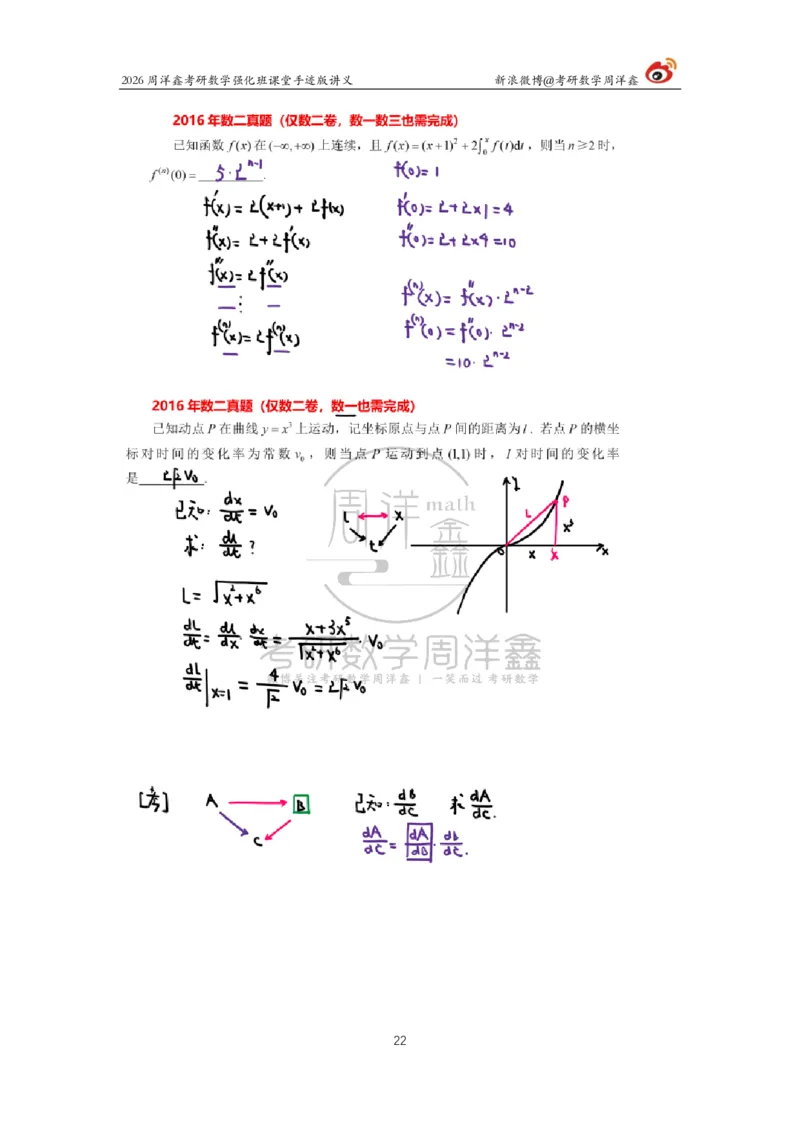 2026周洋鑫考研数学强化班课堂手迹版讲义 新浪微博@考研数学周洋鑫
2016年数二真题（仅数二卷，数一数三也需完成）
已知函数 f(x) 在 (−∞,+∞) 上连续，且 f(x)=(x+1)²+2∫₀ˣ f(t)dt，则当 n≥2 时，
f⁽ⁿ⁾(0)= 5·2ⁿ⁻¹ .
f(0)=1
f'(x)=2(x+1)+2f(x) f'(0)=2+2×1=4
f''(x)=2+2f'(x) f''(0)=2+2×4=10
f'''(x)=2f''(x)
f⁽ⁿ⁾(x)=f''(x)·2ⁿ⁻²
f⁽ⁿ⁾(x)=2f⁽ⁿ⁾(x) f⁽ⁿ⁾(0)=f''(0)·2ⁿ⁻²
=10·2ⁿ⁻²
2016年数二真题（仅数二卷，数一也需完成）
已知动点 P 在曲线 y=x³ 上运动，记坐标原点与点 P 间的距离为 l . 若点 P 的横坐
标对时间的变化率为常数 v₀ ，则当点 P 运动到点 (1,1) 时，l 对时间的变化率
是 2√2 V₀ .
已知: dx/dt = V₀
L X
t
y
P
L
x³
0 x x x
求: dl/dt ?
L= √(x²+x⁶)
dL/dt = dl/dx · dx/dt = (x+3x⁵)/√(x²+x⁶) · V₀
dl/dt|x=1 = 4/√2 V₀ = 2√2 V₀
周洋鑫 math
考研数学周洋鑫
微博关注考研数学周洋鑫 | 一笑而过 考研数学
[考] A B 已知: dB/dC 求 dA/dC.
C dA/dC = dA/dB · db/dC.
22